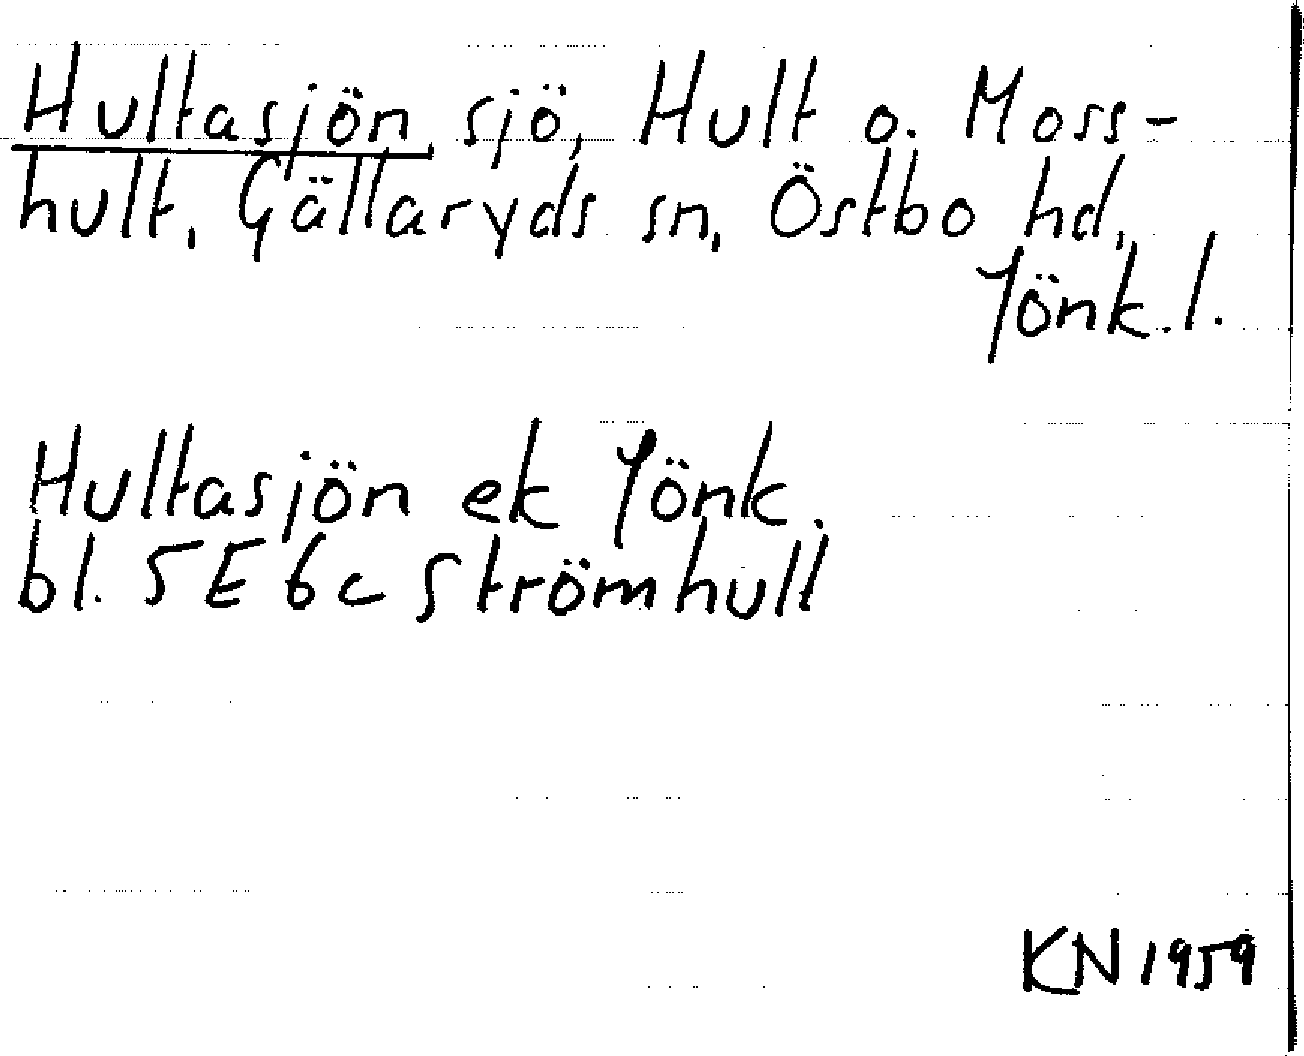 Hultasjön sjö, Hult o. Moss-
hult, Gällaryds sn, Östbo hd,
Jönk.l.
Hultasjön ek Jönk.
bl. 5E 6c Strömhult
KN 1959